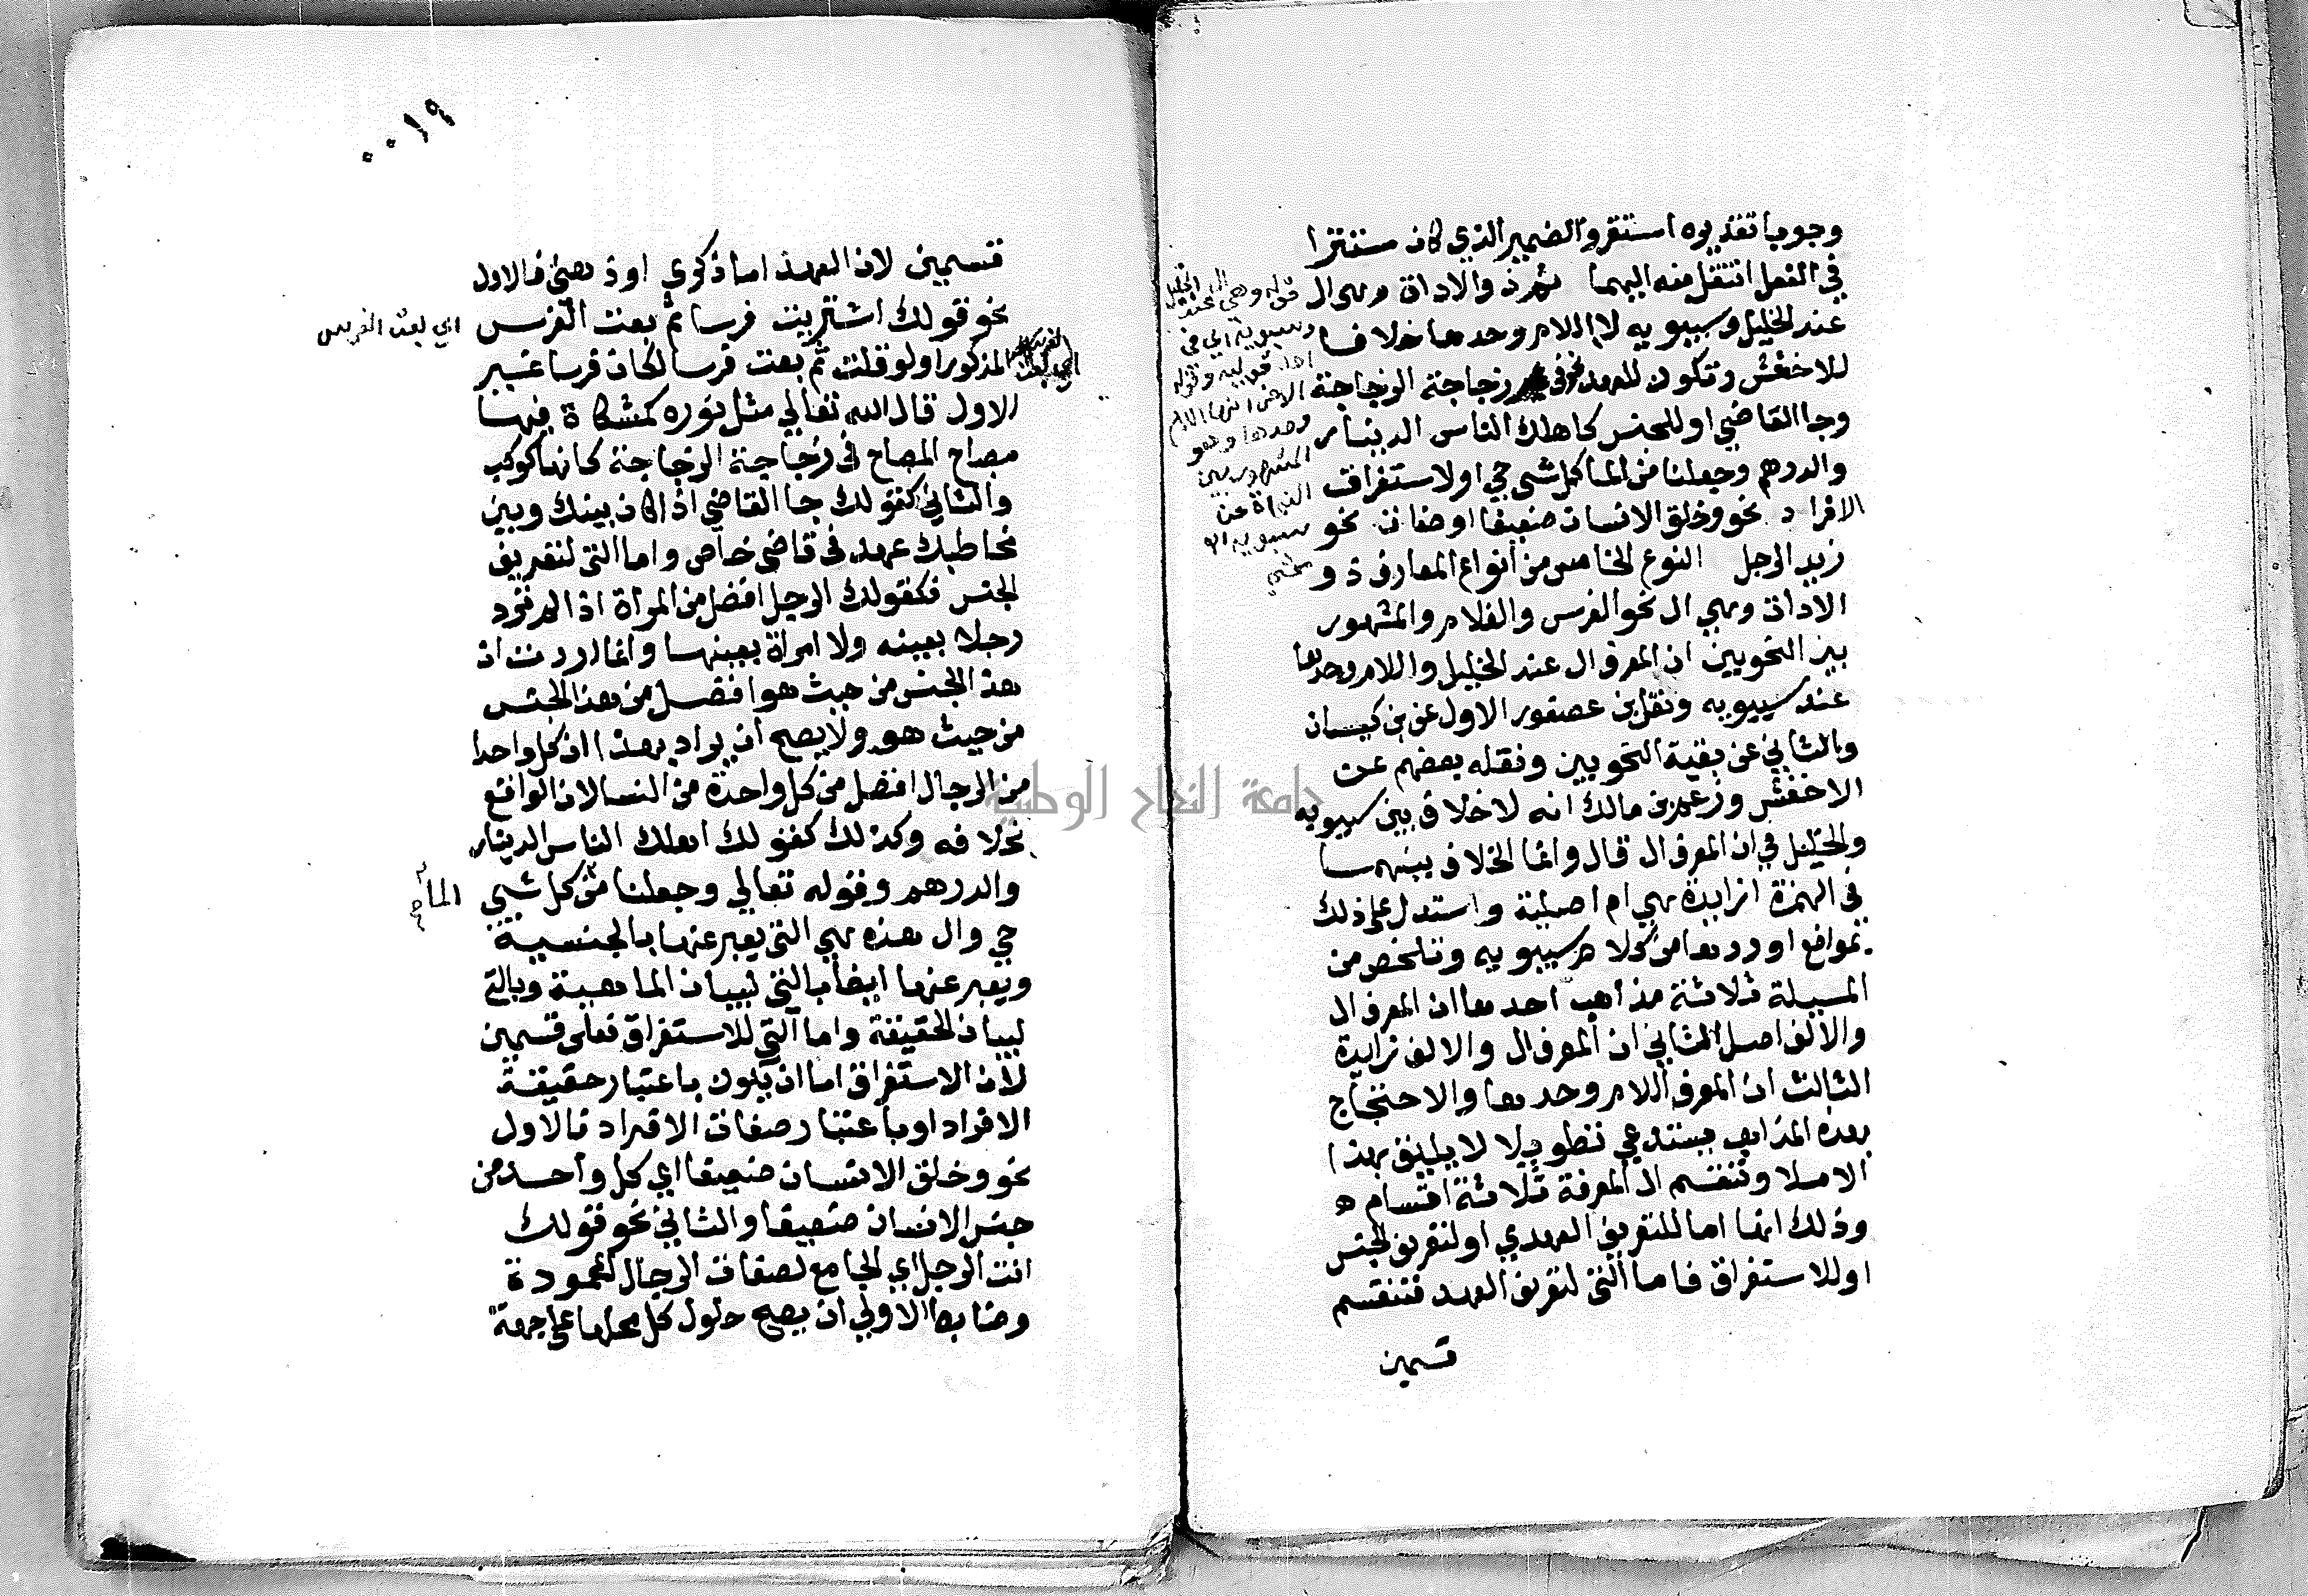 وجوبا تقديره استقر والضمير الذي كان مستترا
في الفعل انتقل منه اليهما ثم ذو الاداة وهي ال
عند الخليل وسيبويه لا اللام وحدها خلافا
للاخفش وتكون للعهد نحو في زجاجة الزجاجة
وجا القاضي او للجنس كاهلك الناس الدينار
والدرهم وجعلنا من الما كل شي حي او لاستغراق
الافراد نحو وخلق الانسان ضعيفا او صفاته نحو
زيد الرجل النوع الخامس من انواع المعارف ذو
الاداة وهي ال نحو الفرس والغلام والمشهور
بين النحويين ان المعرف ال عند الخليل واللام وحدها
عند سيبويه ونقل بن عصفور الاول عن بن كيسان
والثاني عن بقية النحويين ونقله بعضهم عن
الاخفش وزعم بن مالك انه لا خلاف بين سيبويه
والخليل في ان المعرف ال قال وانما الخلاف بينهما
في الهمزة ازايدة هي ام اصلية واستدل على ذلك
بمواضع اوردها من كلام سيبويه وتلخص من
المسيلة ثلاثة مذاهب احدها ان المعرف ال
والالف اصل الثاني ان المعرف ال والالف زايدة
الثالث ان المعرف اللام وحدها والاحتجاج
بهذه المذاهب يستدعي تطويلا لا يليق بهذا
الاملا وتنقسم ال المعرفة ثلاثة اقسام
وذلك انها اما للتعريف العهدي او لتعريف الجنس
او للاستغراق فاما التي لتعريف العهد فتنقسم
قسمين
قوله وهي ال عند الخليل
وسيبويه اي في
احد قوليه وقوله
الاخر انها اللام
وحدها وهو
المشهور بين
النحاة عن
سيبويه
٠٠١٩
قسمين لان العهد اما ذكري او ذهني فالاول
نحو قولك اشتريت فرسا ثم بعت الفرس
اي بعت الفرس
المذكور اولو قلت ثم بعت فرسا لكان فرسا غير
الاول قال الله تعالي مثل نوره كمشكاة فيها
مصباح المصباح في زجاجة الزجاجة كانها كوكب
والثاني كقولك جا القاضي اذا كان بينك وبين
مخاطبك عهد في قاضي خاص واما التي لتعريف
الجنس فكقولك الرجل افضل من المراة اذا لم ترد
رجلا بعينه ولا امراة بعينها وانما اردت ان
هذا الجنس من حيث هو افضل من هذا الجنس
من حيث هو ولا يصح ان يراد بهذا ان كل واحدا
من الرجال افضل من كل واحدة من النسا لان الواقع
بخلافه وكذلك كقولك اهلك الناس الدينار
والدرهم وقوله تعالي وجعلنا من كل شي
الما
حي وال هذه هي التي يعبر عنها بالجنسية
ويعبر عنها ايضا بالتي لبيان الماهية وبالتي
لبيان الحقيقة واما التي للاستغراق فعلى قسمين
لان الاستغراق اما ان يكون باعتبار حقيقة
الافراد او باعتبار صفات الافراد فالاول
نحو وخلق الانسان ضعيفا اي كل واحد من
جنس الانسان ضعيفا والثاني نحو قولك
انت الرجل اي الجامع لصفات الرجال المحمودة
وضابط الاولي ان يصح حلول كل محلها على جهة
جامعة النجاح الوطنية